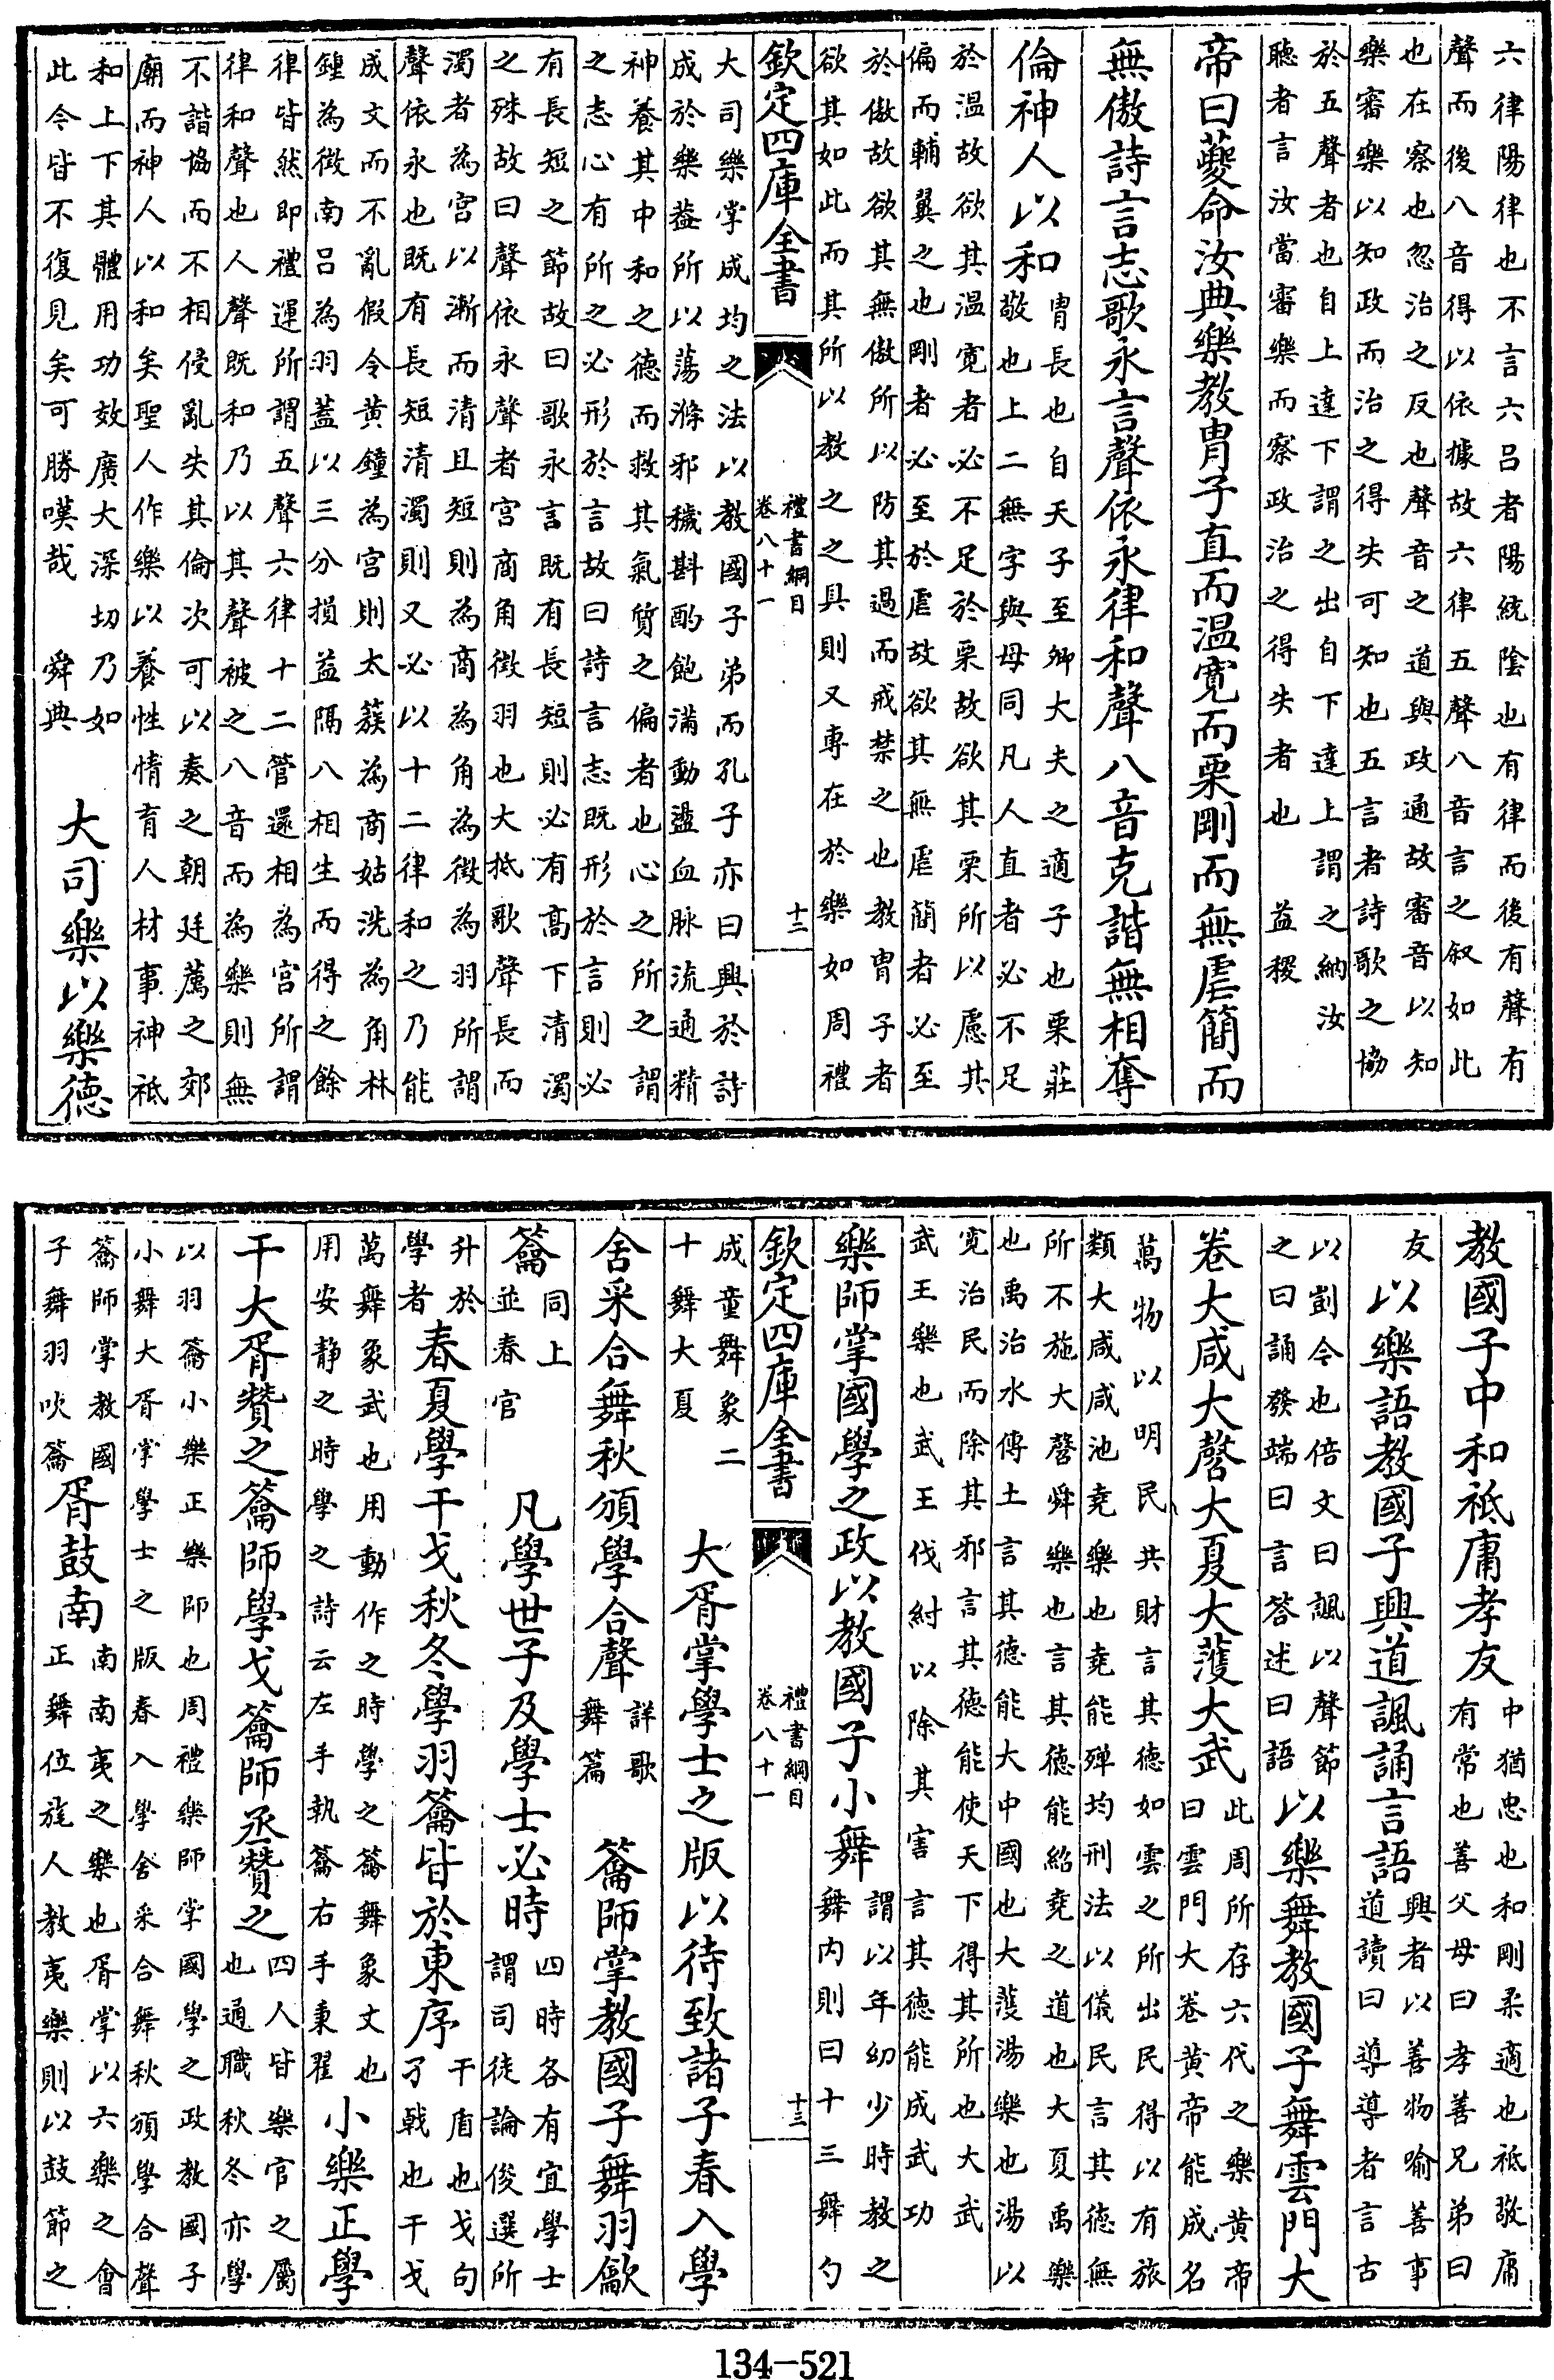 六律陽律也不言六呂者陽統陰也有律而後有聲有
聲而後八音得以依據故六律五聲八音言之叙如此
也在察也忽治之反也聲音之道與政通故審音以知
樂審樂以知政而治之得失可知也五言者詩歌之協
於五聲者也自上達下謂之出自下達上謂之納汝
聽者言汝當審樂而察政治之得失者也 益稷
帝曰夔命汝典樂教胄子直而温寛而栗剛而無虐簡而
無傲詩言志歌永言聲依永律和聲八音克諧無相奪
倫神人以和
胄長也自天子至卿大夫之適子也栗莊
敬也上二無字與母同凡人直者必不足
於温故欲其温寛者必不足於栗故欲其栗所以慮其
偏而輔翼之也剛者必至於虐故欲其無虐簡者必至
於傲故欲其無傲所以防其過而戒禁之也教胄子者
欲其如此而其所以教之之具則又專在於樂如周禮
欽定四庫全書
禮書綱目
卷八十一
十二
大司樂掌成均之法以教國子弟而孔子亦曰興於詩
成於樂葢所以蕩滌邪穢斟酌飽滿動盪血脉流通精
神養其中和之德而救其氣質之偏者也心之所之謂
之志心有所之必形於言故曰詩言志既形於言則必
有長短之節故曰歌永言既有長短則必有髙下清濁
之殊故曰聲依永聲者宫商角徵羽也大抵歌聲長而
濁者為宫以漸而清且短則為商為角為徵為羽所謂
聲依永也既有長短清濁則又必以十二律和之乃能
成文而不亂假令黄鐘為宫則太蔟為商姑洗為角林
鍾為徵南呂為羽蓋以三分損益隔八相生而得之餘
律皆然即禮運所謂五聲六律十二管還相為宫所謂
律和聲也人聲既和乃以其聲被之八音而為樂則無
不諧協而不相侵亂失其倫次可以奏之朝廷薦之郊
廟而神人以和矣聖人作樂以養性情育人材事神祗
和上下其體用功效廣大深切乃如
此今皆不復見矣可勝嘆哉 舜典
大司樂以樂德
教國子中和祗庸孝友
中猶忠也和剛柔適也祗敬庸
有常也善父母曰孝善兄弟曰
友
以樂語教國子興道諷誦言語
興者以善物喻善事
道讀曰導導者言古
以剴今也倍文曰諷以聲節
之曰誦發端曰言答述曰語
以樂舞教國子舞雲門大
卷大咸大磬大夏大濩大武
此周所存六代之樂黄帝
曰雲門大卷黄帝能成名
萬物以明民共財言其徳如雲之所出民得以有旅
類大咸咸池堯樂也堯能殫均刑法以儀民言其徳無
所不施大磬舜樂也言其徳能紹堯之道也大夏禹樂
也禹治水傳土言其德能大中國也大濩湯樂也湯以
寛治民而除其邪言其德能使天下得其所也大武
武王樂也武王伐紂以除其害言其徳能成武功
樂師掌國學之政以教國子小舞
謂以年幼少時教之
舞内則曰十三舞勺
欽定四庫全書
禮書綱目
卷八十一
十三
成童舞象二
十舞大夏
大胥掌學士之版以待致諸子春入學
舍采合舞秋頒學合聲
詳歌
舞篇
籥師掌教國子舞羽龡
籥
同上
並春官
凡學世子及學士必時
四時各有宜學士
謂司徒論俊選所
升於
學者
春夏學干戈秋冬學羽籥皆於東序
干盾也戈句
孑戟也干戈
萬舞象武也用動作之時學之籥舞象文也
用安静之時學之詩云左手執籥右手秉翟
小樂正學
干大胥贊之籥師學戈籥師丞贊之
四人皆樂官之屬
也通職秋冬亦學
以羽籥小樂正樂師也周禮樂師掌國學之政教國子
小舞大胥掌學士之版春入學舍采合舞秋頒學合聲
籥師掌教國
子舞羽吹籥
胥鼓南
南南夷之樂也胥掌以六樂之會
正舞位旄人教夷樂則以鼓節之
134-521